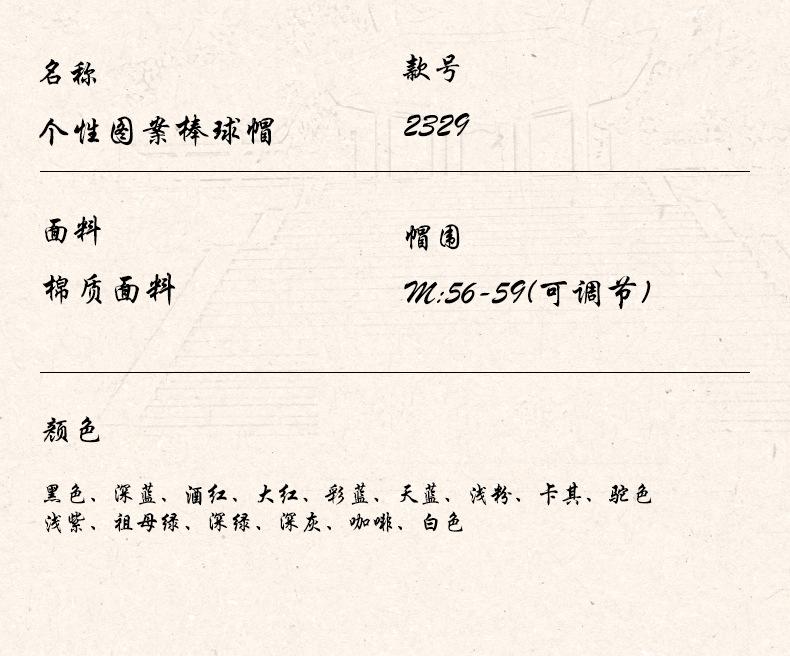 名称
款号
个性图案棒球帽
2329
面料
帽围
棉质面料
M:56-59(可调节)
颜色
黑色、深蓝、酒红、大红、彩蓝、天蓝、浅粉、卡其、驼色
浅紫、祖母绿、深绿、深灰、咖啡、白色